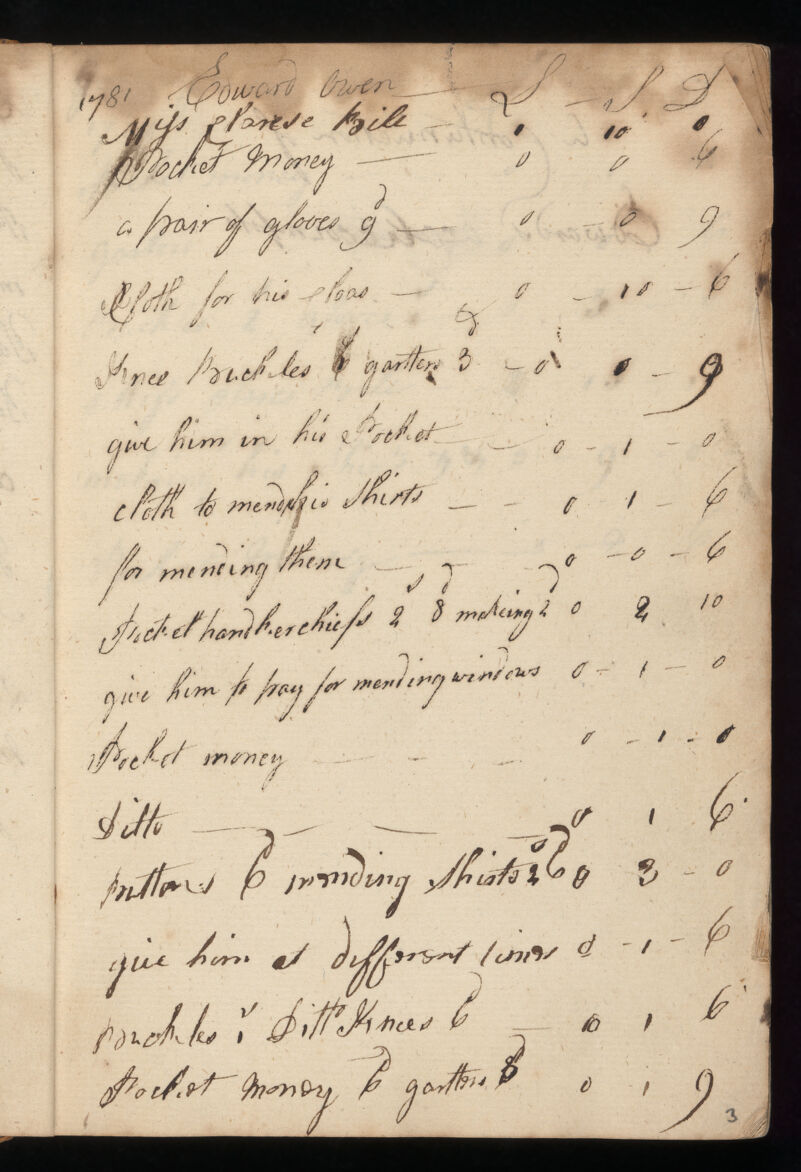 1781 Edward Owen — L — S D
Miss Bill — 1 10 0
Pocket Money — 0 0 6
a pair of gloves 9d — 0 — 0 9
Cloth for his — 0 — 10 — 6
Knee Buckles 6 garters 3d — 0 0 — 9
give him in his Pocket — 0 — 1 — 0
cloth to mend his Shirts — — 0 1 — 6
for mending them — — 0 — 0 — 6
Pocket handkerchiefs 2s 8d making 2d 0 2 10
give him to pay for mending windows 0 — 1 — 0
Pocket money — — — 0 — 1 — 0
Ditto — — — 0 1 6
buttons 6d mending Shirts 2s 6d 0 3 — 0
give him at different times 0 — 1 — 6
buckles 1s Ditto Knees 6d — 0 1 6
Pocket Money 6d garters 0 1 9
3